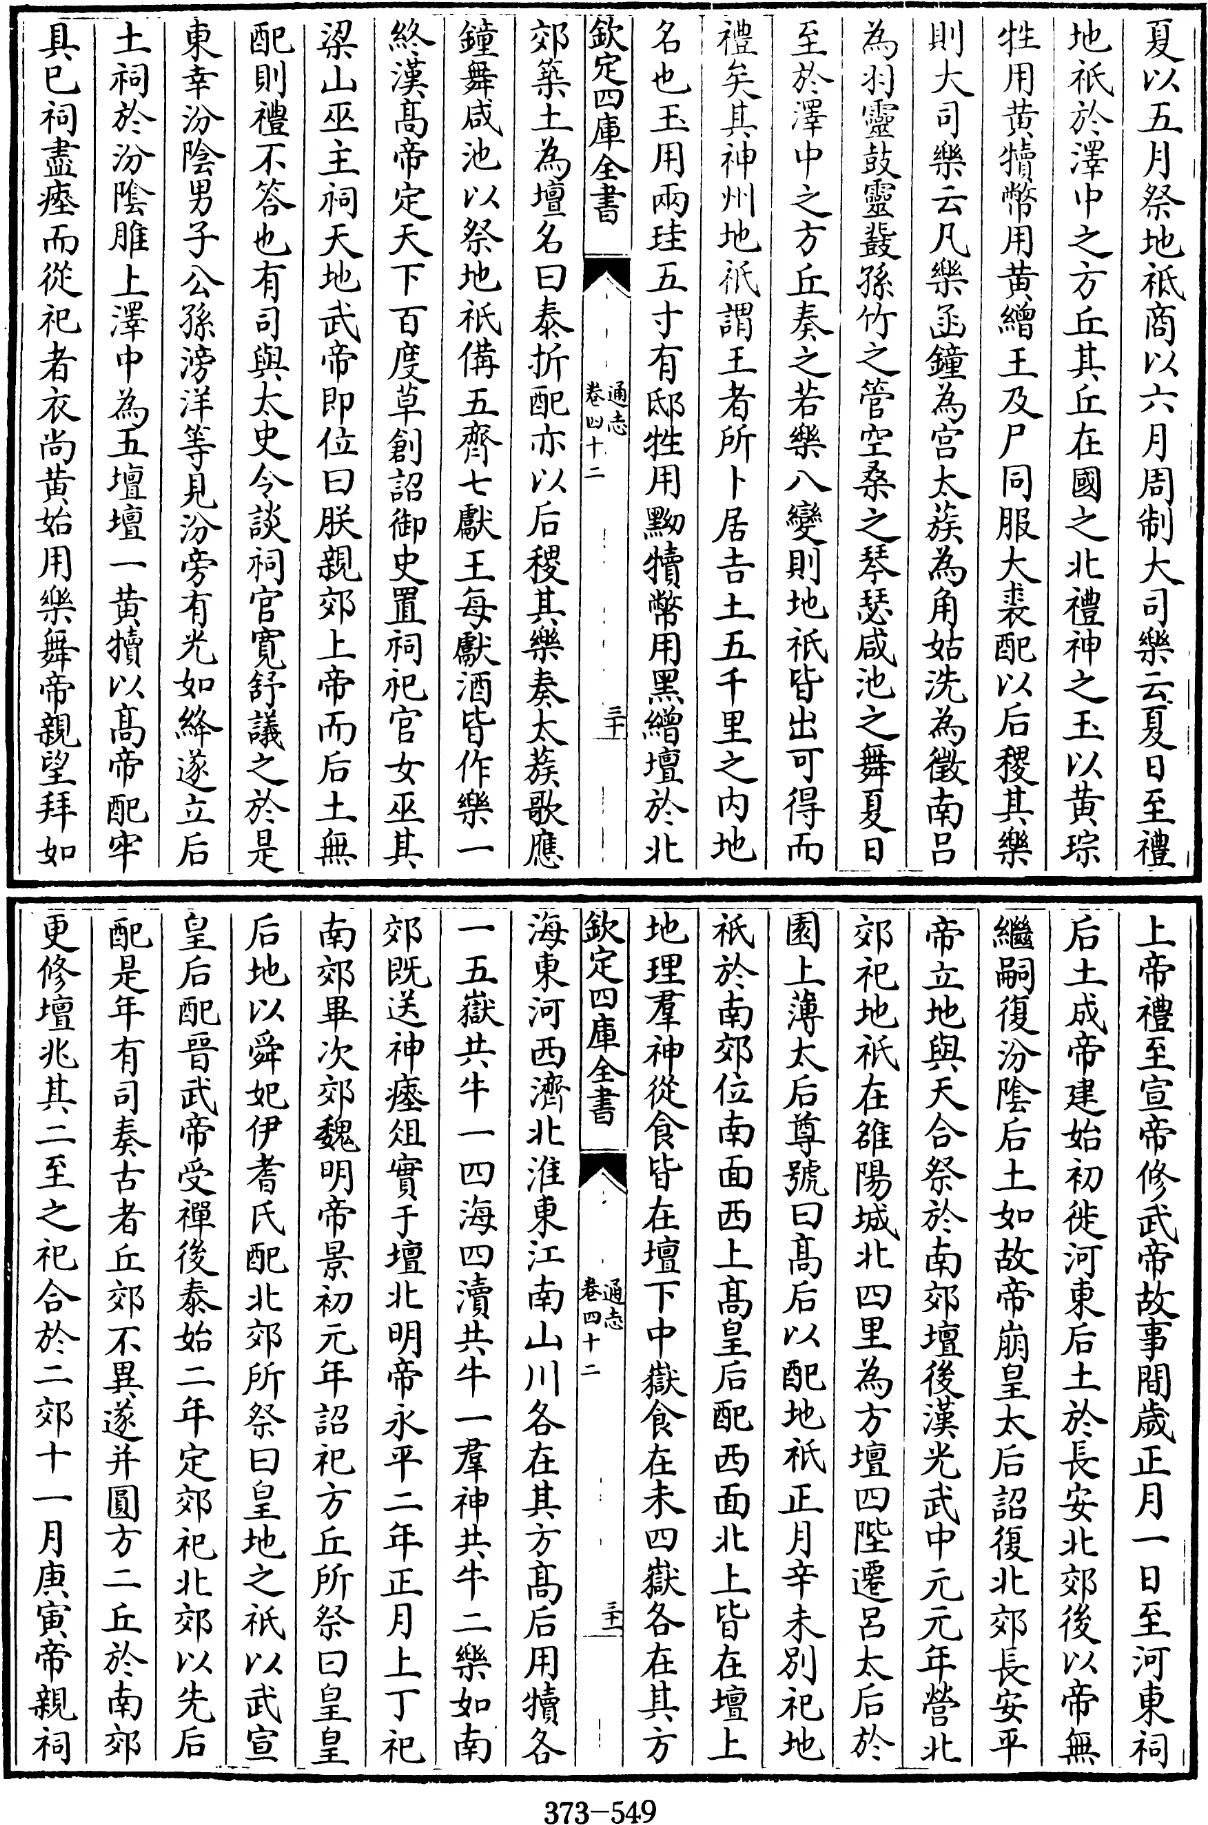 夏以五月祭地祗商以六月周制大司樂云夏日至禮
地祇於澤中之方丘其丘在國之北禮神之玉以黄琮
牲用黄犢幣用黄繒王及尸同服大裘配以后稷其樂
則大司樂云凡樂函鐘為宫太蔟為角姑洗為徵南呂
為羽靈鼓靈鼗孫竹之管空桑之琴瑟咸池之舞夏日
至於澤中之方丘奏之若樂八變則地祇皆出可得而
禮矣其神州地祇謂王者所卜居吉土五千里之内地
名也玉用兩珪五寸有邸牲用黝犢幣用黑繒壇於北
欽定四庫全書
通志
卷四十二
三十
郊築土為壇名曰泰折配亦以后稷其樂奏太蔟歌應
鐘舞咸池以祭地祇備五齊七獻王每獻酒皆作樂一
終漢髙帝定天下百度草創詔御史置祠祀官女巫其
梁山巫主祠天地武帝即位曰朕親郊上帝而后土無
配則禮不答也有司與太史令談祠官寛舒議之於是
東幸汾陰男子公孫滂洋等見汾旁有光如絳遂立后
土祠於汾隂脽上澤中為五壇壇一黄犢以髙帝配牢
具已祠盡瘞而從祀者衣尚黄始用樂舞帝親望拜如
上帝禮至宣帝修武帝故事間歲正月一日至河東祠
后土成帝建始初徙河東后土於長安北郊後以帝無
繼嗣復汾隂后土如故帝崩皇太后詔復北郊長安平
帝立地與天合祭於南郊壇後漢光武中元元年營北
郊祀地祇在雒陽城北四里為方壇四陛遷呂太后於
園上薄太后尊號曰髙后以配地祇正月辛未别祀地
祇於南郊位南面西上髙皇后配西面北上皆在壇上
地理羣神從食皆在壇下中嶽食在未四嶽各在其方
欽定四庫全書
通志
卷四十二
三十一
海東河西濟北淮東江南山川各在其方髙后用犢各
一五嶽共牛一四海四瀆共牛一羣神共牛二樂如南
郊既送神瘞俎實于壇北明帝永平二年正月上丁祀
南郊畢次郊魏明帝景初元年詔祀方丘所祭曰皇皇
后地以舜妃伊耆氏配北郊所祭曰皇地之祇以武宣
皇后配晉武帝受禪後泰始二年定郊祀北郊以先后
配是年有司奏古者丘郊不異遂并圓方二丘於南郊
更修壇兆其二至之祀合於二郊十一月庚寅帝親祠
373-549